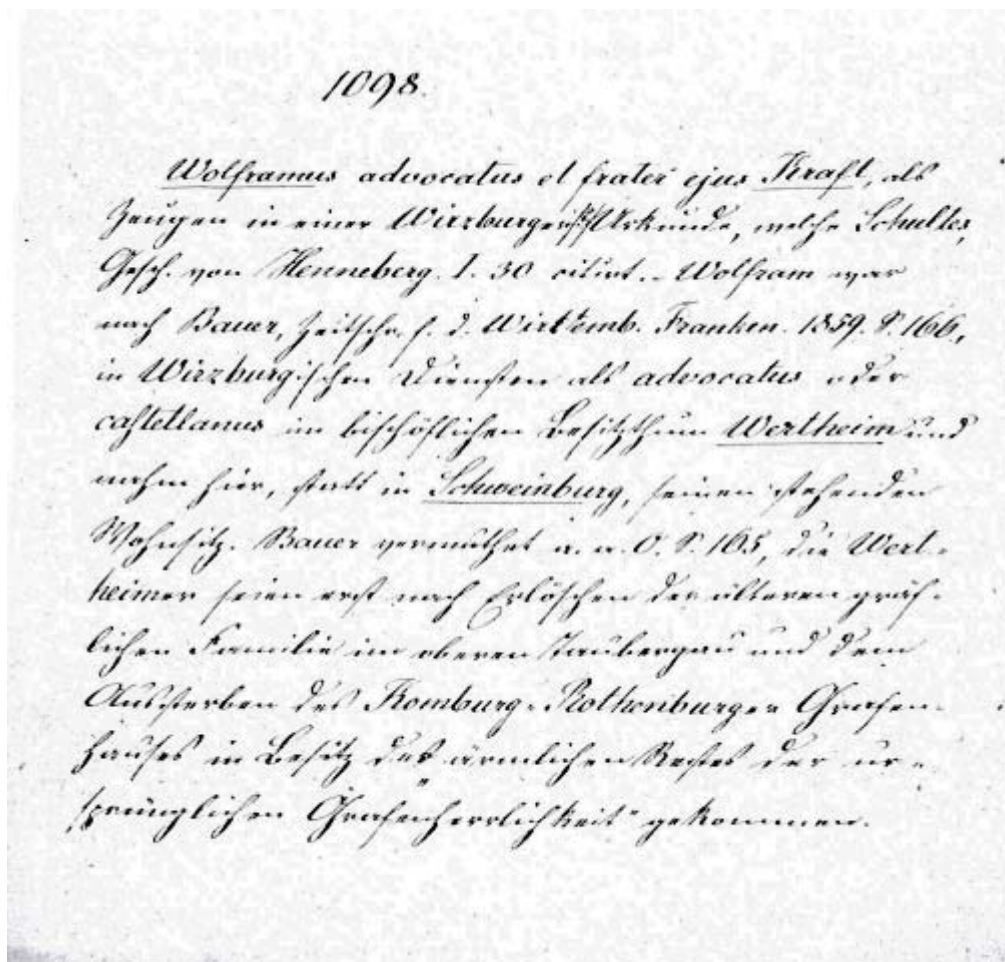 1098.
Wolframus advocatus et frater ejus Kraft, als
Zeugen in einer Wirzburger Urkunde, welche Schultes,
Gesch. von Henneberg. I. 30 citirt. - Wolfram war
nach Bauer, Zeitschr. f. d. Wirtemb. Franken. 1859. S. 166,
in Wirzburgischen Diensten als advocatus oder
castellanus im bischöflichen Besitzthum Wertheim und
nahm hier, statt in Schweinburg, seinen stehenden
Wohnsitz. Bauer vermuthet a. a. O. S. 165, die Wert-
heimer seien erst nach Erlöschen der älteren gräf-
lichen Familie im oberen Taubergau und dem
Aussterben des Komburg-Rothenburger Grafen-
hauses in Besitz des „ärmlichen Restes der ur-
sprünglichen Grafenherrlichkeit" gekommen.